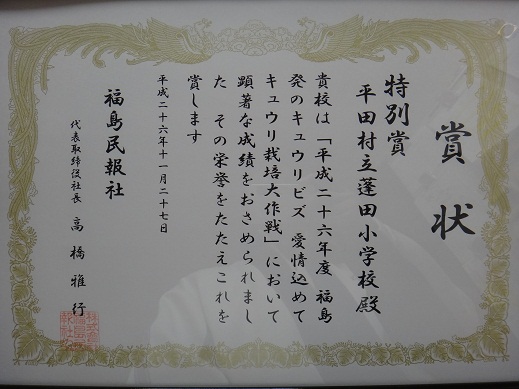 賞状
特別賞
平田村立蓬田小学校殿
貴校は「平成二十六年度 福島
発のキュウリビズ 愛情込めて
キュウリ栽培大作戦」において
顕著な成績をおさめられまし
た その栄誉をたたえこれを
賞します
平成二十六年十一月二十七日
福島民報社
代表取締役社長 高橋雅行